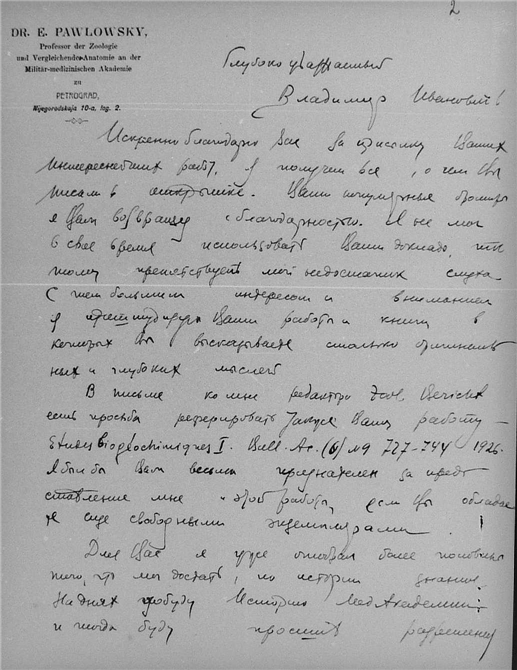 2
DR. E. PAWLOWSKY,
Professor der Zoologie
und Vergleichender Anatomie an der
Militär-medizinischen Akademie
zu
PETROGRAD,
Nijegorodskaja 10-a, log. 2.
Глубоко уважаемый
Владимир Иванович!
Искренно благодарю Вас за присылку Ваших
интереснейших работ, я получил все, о чем Вы
писали в открытке. Ваши популярные брошюры
я Вам возвращу с благодарностью. Я не мог
в свое время использовать Ваших докладов, т.к.
тому препятствует мой недостаток слуха
С тем большим интересом и вниманием
я проштудирую Ваши работы и книги в
которых Вы высказываете столько оригиналь
ных и глубоких мыслей
В письме ко мне редактора Zool Bericht
есть просьба реферировать также Вашу работу —
Etudes biogéochimiques I. Bull. Ac. (6) № 9 727-744 1926.
Я был бы Вам весьма признателен за предо
ставление мне этой работы, если Вы обладае
те еще свободными экземплярами.
Для Вас я уже отобрал более половины
того, что мог достать, по истории знания.
На днях добуду Историю Мед Академии
и тогда буду просить разрешения